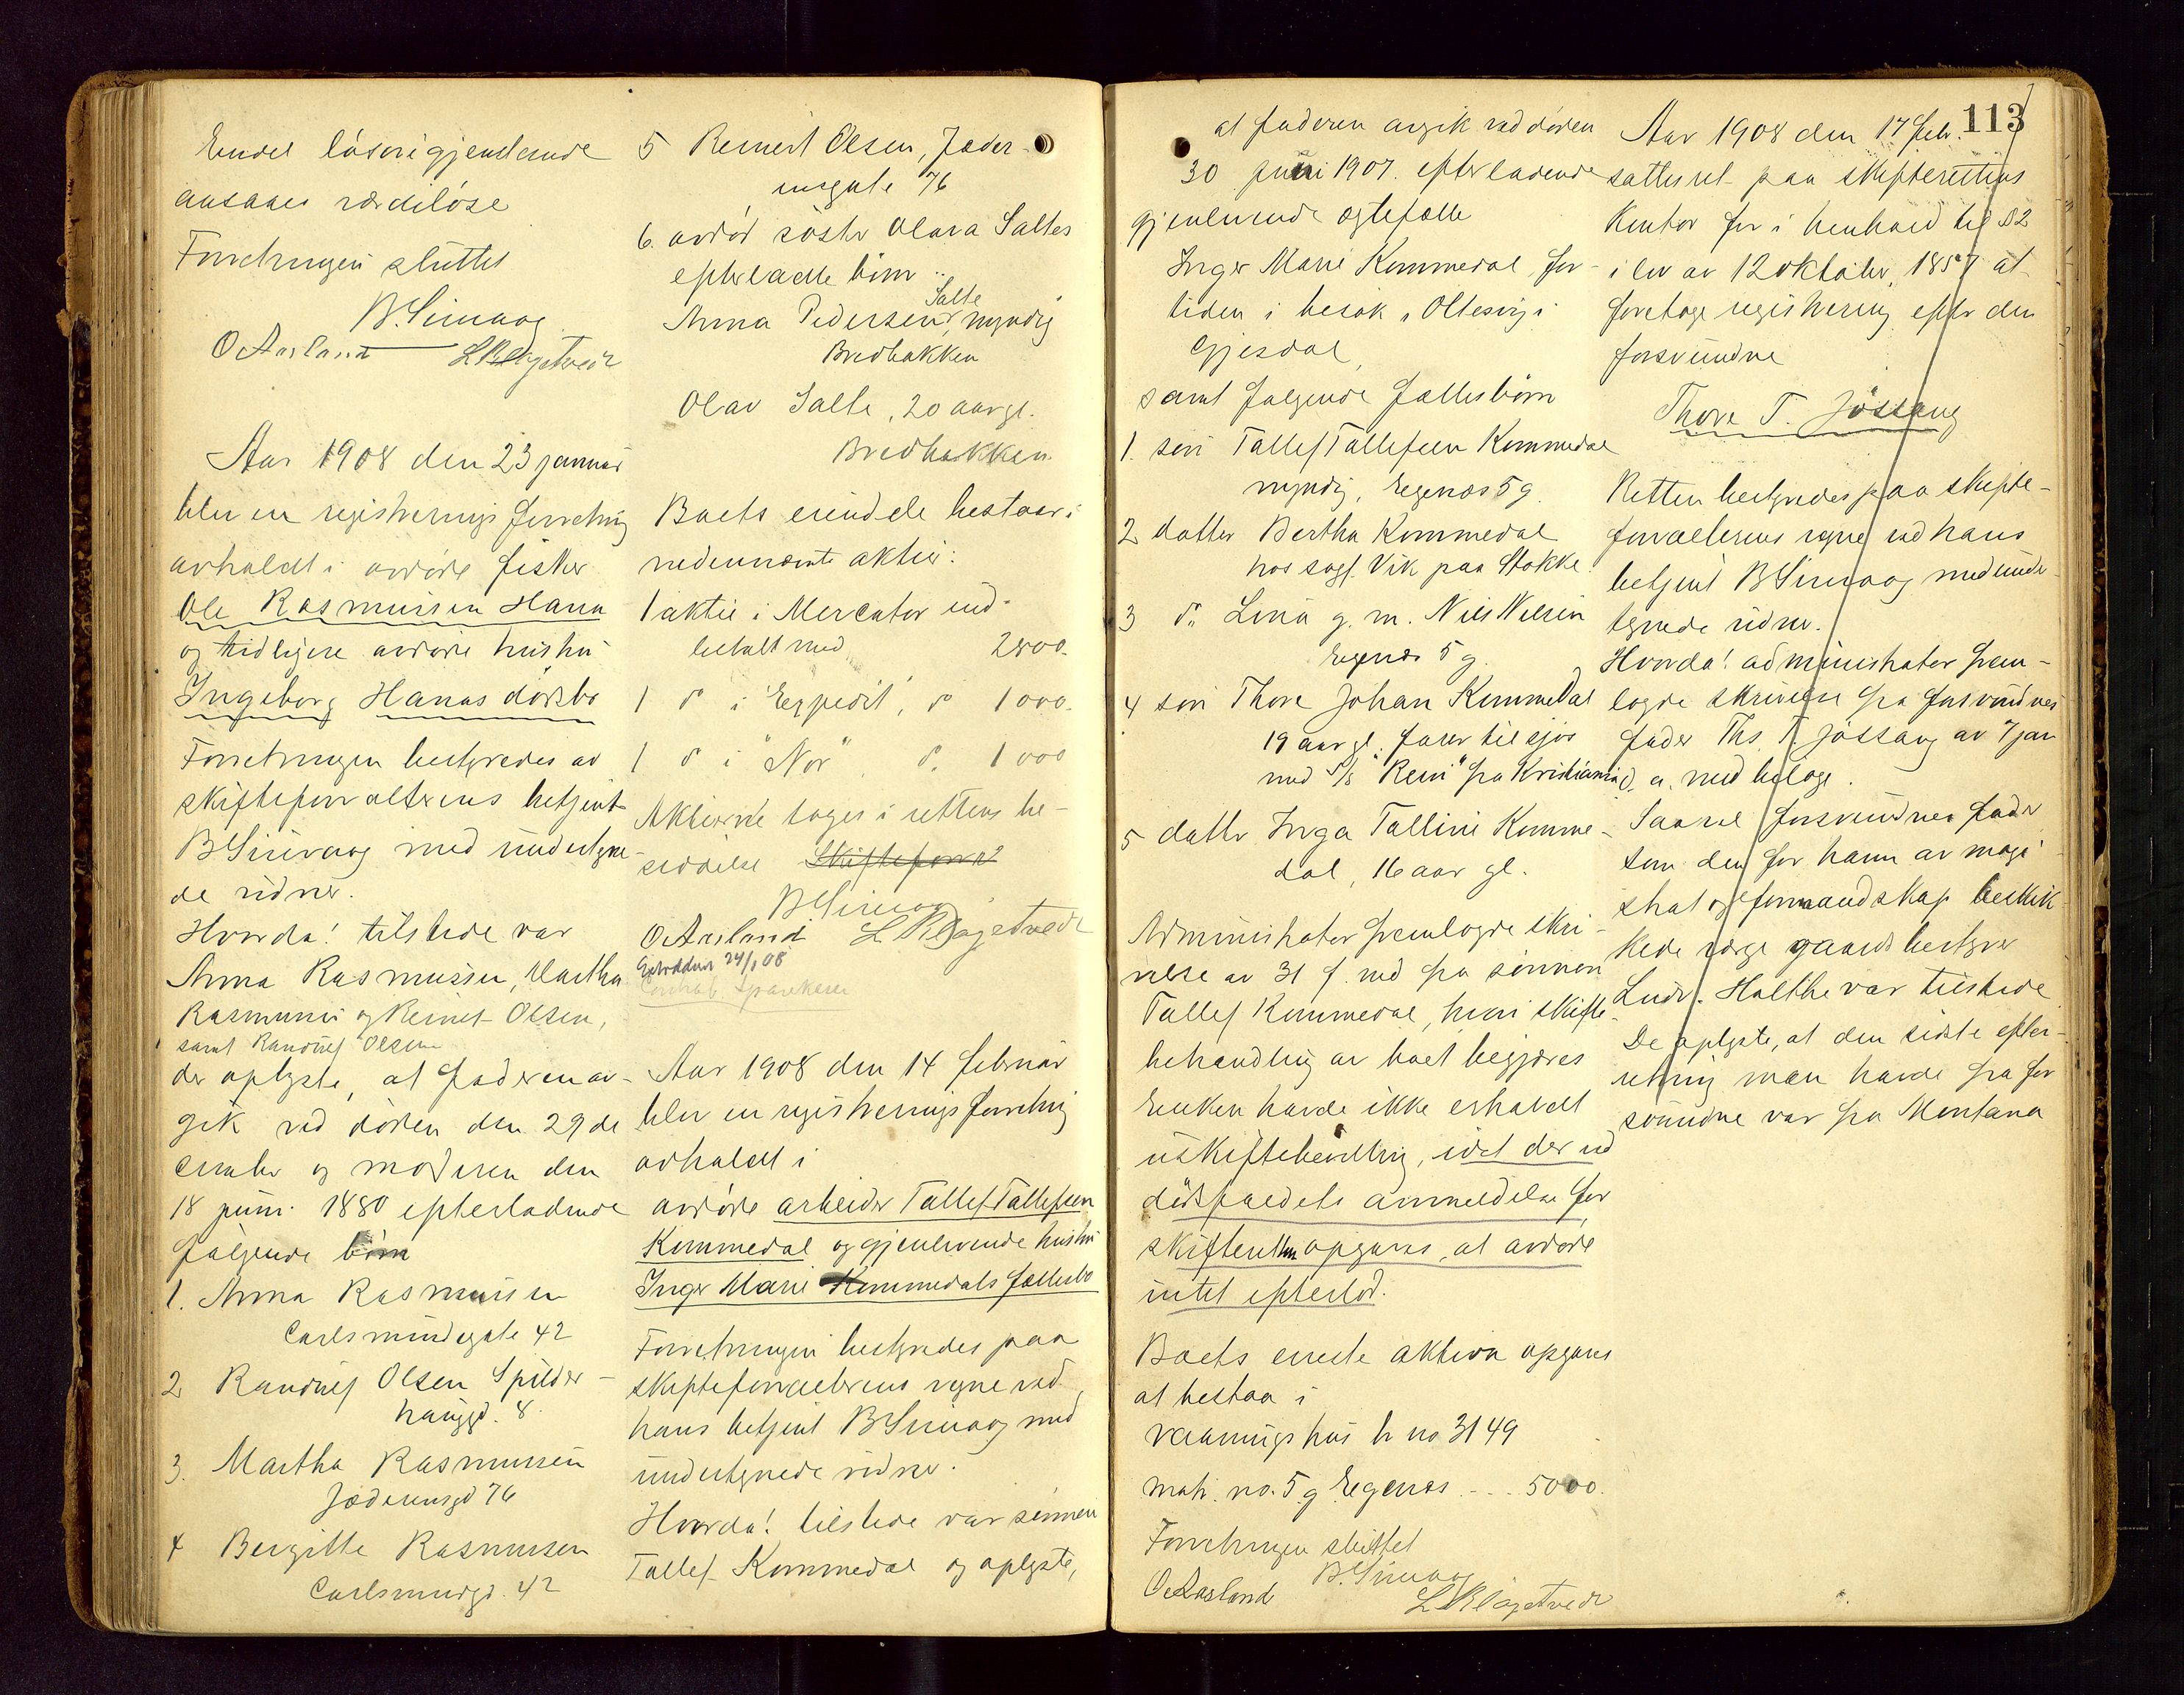 Endel løsøregjenstande
ansaaes værdiløse
Forretningen sluttet
B. Simvog
O Aasland L Kløgetvedt
Aar 1908 den 23 januar
blev en registrerings forretning
avholdt i avdøde fisker
Ole Rasmussen Hana
og tidligere avdøde hustru
Ingeborg Hanas dødsbo
Forretningen bestyredes av
skifteforvalterens betjent
B Simvog med undertegne-
de vidner.
Hvorda! tilstede var
Anna Rasmussen, Martha
Rasmussen og Reinert Olsen,
samt Randulf Olsen
der oplyste, at faderen av-
gik ved døden den 29 de
cember og moderen den
18 juni 1880 efterladende
følgende børn
1. Anna Rasmussen
Carlsmindegate 42
2 Randulf Olsen Spilder-
hauggd. 8
3. Martha Rasmussen
Jæderensgd 76
4 Bergitte Rasmussen
Carlsmindgd. 42
5 Reinert Olsen, Jæder-
ensgate 76
6. avdød søster Olava Saltes
efterladte børn
Salte
Anna Pedersen, myndig
Bredbakken
Olav Salte, 20 aar gl.
Bredbakken
Boets eiendele bestaar i
nedennævnte aktier:
1 aktie i Mercator ind-
betalt med 2800.
1 do i "Expedit", do 1000.
1 do i "Nor" do. 1000
Aktierne tages i rettens be-
siddelse Skifteforv
B Simvog
O Aasland L Kløgetvedt
24/1 08
Sparekasse
Aar 1908 den 14 februar
blev en registrerings forretning
avholdt i
avdøde arbeider Tallef Tallefsen
Kommedal og gjenlevende hustru
Inger Marie Kommedals fællesbo
Forretningen bestyredes paa
skifteforvalterens vegne ved
hans betjent B Simvog med
undertegnede vidner.
Hvorda! tilstede var sønnen
Tallef Kommedal og oplyste,
113
at faderen avgik ved døden
30 juni 1907. efterladende
gjenlevende egtefælle
Inger Marie Kommedal for-
tiden i besøk i Oltesvig i
Gjesdal
samt følgende fællesbørn
1. søn Tallef Tallefsen Kommedal
myndig, Egenæs 5 g.
2 datter Bertha Kommedal
hos sagf. Vik paa Stokke
3 do. Lina g. m. Nils Nilsen
Egenæs 5 g.
4 søn Thore Johan Kommedal
19 aar gl. farer til sjøs
med S/S "Rein" fra Kristiania
5 datter Inga Talline Komme-
dal, 16 aar gl.
Administrator fremlagde skri-
velse av 31 f. md fra sønnen
Tallef Kommedal, hvori skifte-
behandling av boet begjæres
Enken havde ikke erholdt
uskiftebevilling, idet der ved
dødsfaldets anmeldelse for
skifteretten opgaves, at avdøde
intet efterlod.
Boets eneste aktiva opgaves
at bestaa i
vaaningshus br no 3149
matr. no. 5 g Egenæs - - - 5000.
Forretningen sluttet
B. Simvog
O Aasland L Kløgetvedt
Aar 1908 den 17 febr.
sattes ret paa skifterettens
kontor for i henhold til § 2
i lov av 12 oktober 1857 at
foretage registrering efter den
forsvundne
Thore T. Jøssang
Retten bestyredes paa skifte-
forvalterens vegne ved hans
betjent B Simvog med under-
tegnede vidner.
Hvorda! administrator frem-
lagde skrivelse fra forsvundnes
fader Ths. T. Jøssang av 7 jan
d. a. med bilage.
Saavel forsvundnes fader
som den for ham av magi-
strat og formandskap beskik-
kede verge gaardsbestyrer
Ludv. Holthe var tilstede
De oplyste, at den sidste efter-
retning man havde fra for
svundne var fra Montana